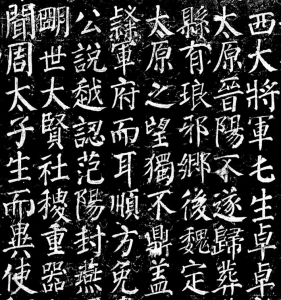 西大將軍七生卓卓
太原晉陽不遂歸葬
縣有琅邪鄉後魏定
太原之望獨不鼎盖
隸軍府而耳順方免
公說越認范陽封燕
明世大賢社稷重器
聞周太子生而異使